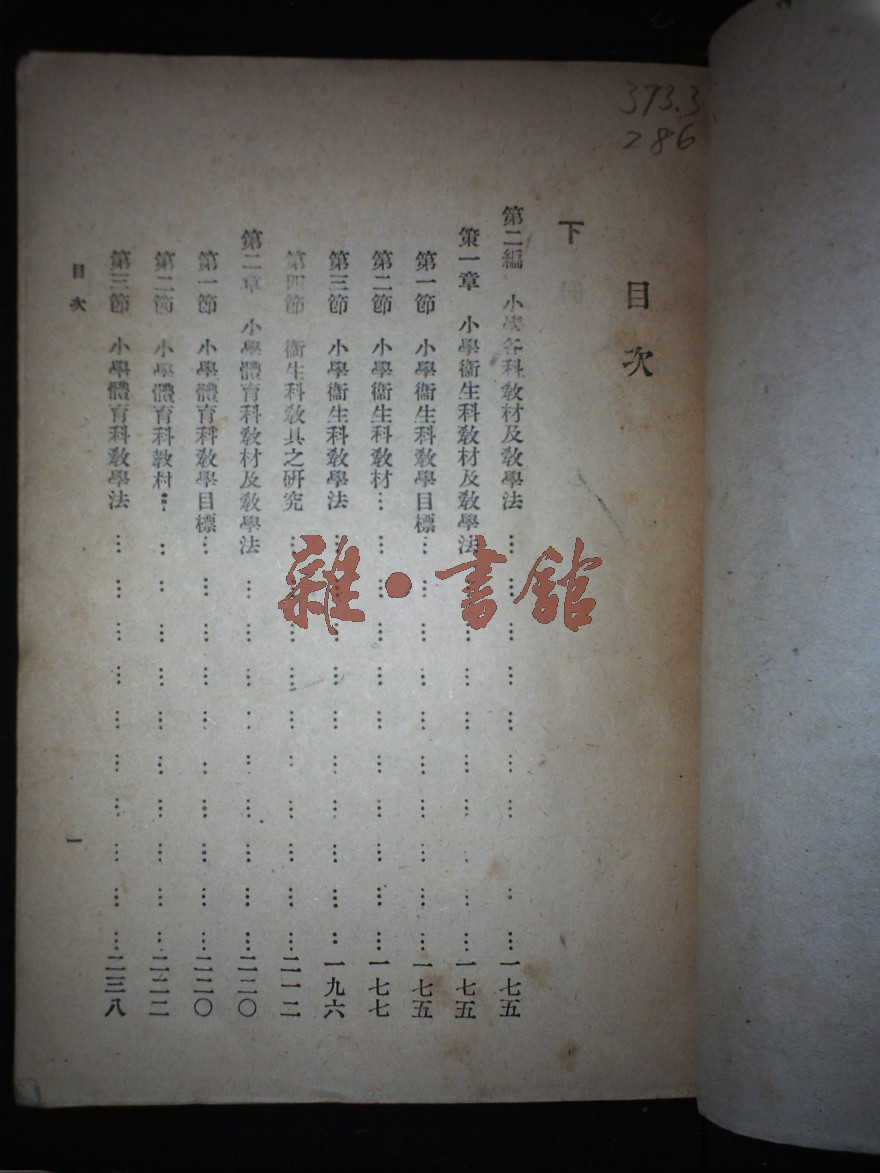 373.3
286
目次
下
第二編 小學各科教材及教學法 ……………………… 一七五
第一章 小學衞生科教材及教學法 ……………………… 一七五
第一節 小學衞生科教學目標 ……………………… 一七五
第二節 小學衞生科教材 ……………………… 一七七
第三節 小學衞生科教學法 ……………………… 一九六
第四節 衞生科教具之研究 ……………………… 二一二
第二章 小學體育科教材及教學法 ……………………… 二二〇
第一節 小學體育科教學目標 ……………………… 二二〇
第二節 小學體育科教材 ……………………… 二二二
第三節 小學體育科教學法 ……………………… 二三八
目次 一
雜·書館